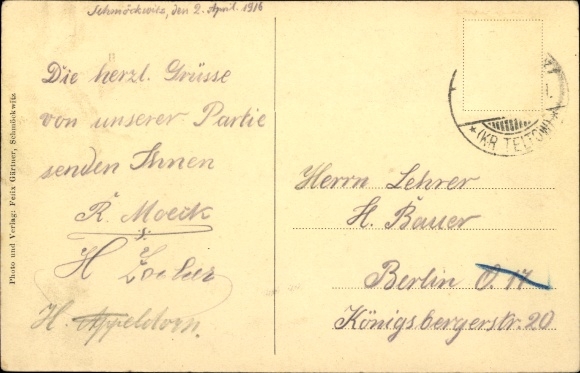 Schmöckwitz, den 2. April. 1916
Die herzl. Grüsse
von unserer Partie
senden Ihnen
R. Moeck
H
H. Appeldorn.
Photo und Verlag: Felix Gärtner, Schmöckwitz
*(KR. TELTOW)*
Herrn Lehrer
H. Bauer
Berlin O. 17
Königsbergerstr. 20